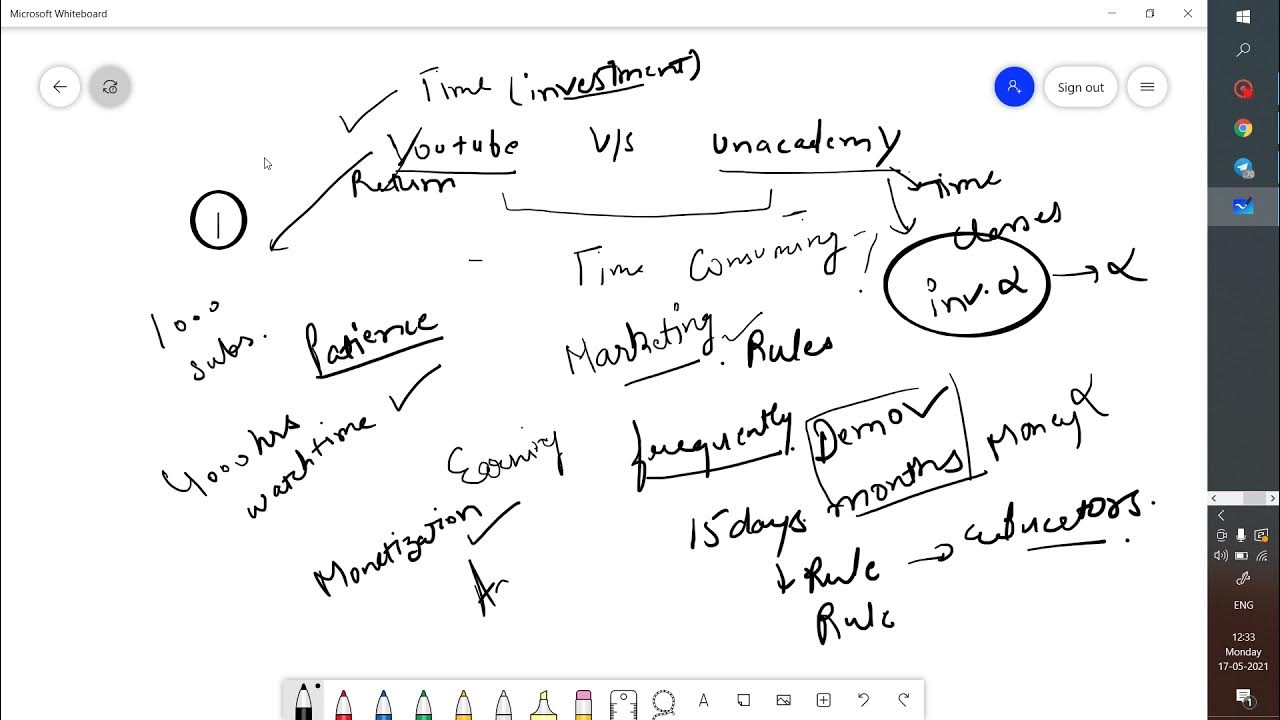 Microsoft Whiteboard
Sign out
Time (investment)
Youtube v/s unacademy
Return
Time
classes
1
Time Consuming
inv. α → α
1000
subs.
Patience
Marketing
Rules
4000 hrs
watchtime
Earning
frequently
Demo
months
Money α
Monetization
15 days
Rule →
Rule
A
ENG
12:33
Monday
17-05-2021
70
1